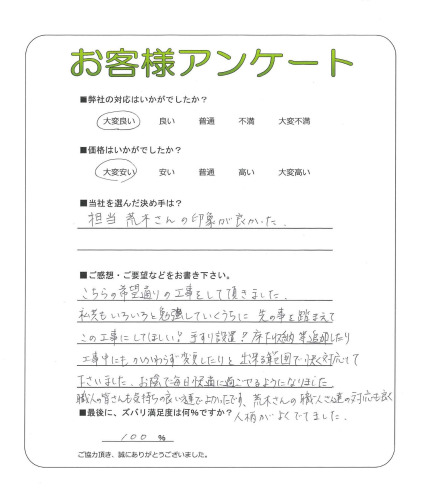 お客様アンケート
■弊社の対応はいかがでしたか？
大変良い 良い 普通 不満 大変不満
■価格はいかがでしたか？
大変安い 安い 普通 高い 大変高い
■当社を選んだ決め手は？
担当 荒木さんの印象が良かった．
■ご感想・ご要望などをお書き下さい。
こちらの希望通りの工事をして頂きました．
私共もいろいろと勉強していくうちに 先の事を踏まえて
この工事にしてほしい！手すり設置？床下収納 等追加したり
工事中にもかかわらず変更したりと 出来る範囲で快く対応して
下さいました．お陰で毎日快適に過ごせるようになりました
職人の皆さんも気持ちの良い方達でよかったです．荒木さんの職人さん達の対応も良く
人柄がよくでてました．
■最後に、ズバリ満足度は何％ですか？
100 ％
ご協力頂き、誠にありがとうございました。